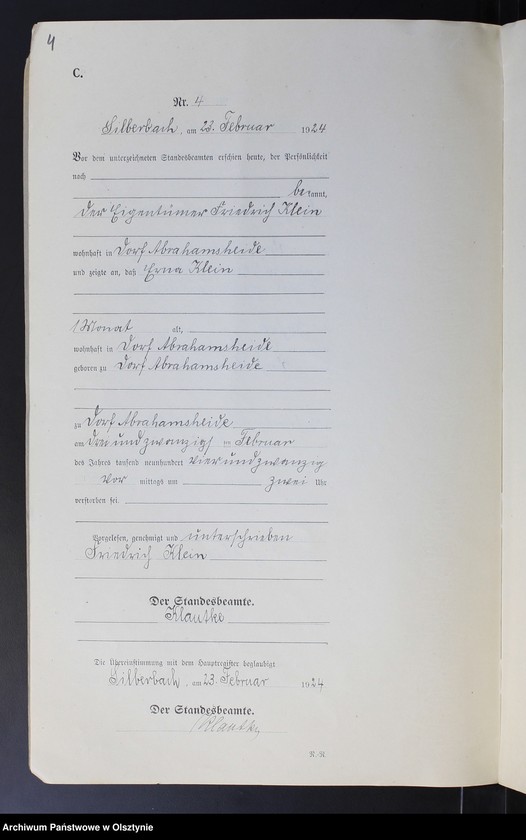 4
C.
Nr. 4
Silberbach, am 23. Februar 1924
Vor dem unterzeichneten Standesbeamten erschien heute, der Persönlichkeit
nach
bekannt,
der Eigentümer Friedrich Klein
wohnhaft in Dorf Abrahamsheide
und zeigte an, daß Erna Klein
1 Monat alt,
wohnhaft in Dorf Abrahamsheide
geboren zu Dorf Abrahamsheide
zu Dorf Abrahamsheide
am drei und zwanzigst en Februar
des Jahres tausend neunhundert vier und zwanzig
Vor mittags um zwei Uhr
verstorben sei.
Vorgelesen, genehmigt und unterschrieben
Friedrich Klein
Der Standesbeamte.
Klautke
Die Übereinstimmung mit dem Hauptregister beglaubigt
Silberbach, am 23. Februar 1924
Der Standesbeamte.
Klautke
Archiwum Państwowe w Olsztynie